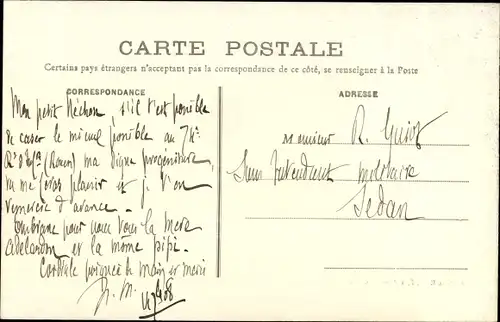 CARTE POSTALE
Certains pays étrangers n'acceptant pas la correspondance de ce côté, se renseigner à la Poste
CORRESPONDANCE
ADRESSE
Mon petit s'il t'est possible
de caser le mieux possible au 74e
Rt d'Infie (Rouen) ma digne progéniture,
tu me feras plaisir et je t'en
remercie d'avance.
Embrasse pour nous tous la mère
et la môme pipi.
Cordiale poignée de main et merci
Monsieur R.
Sous Intendant militaire
Sedan